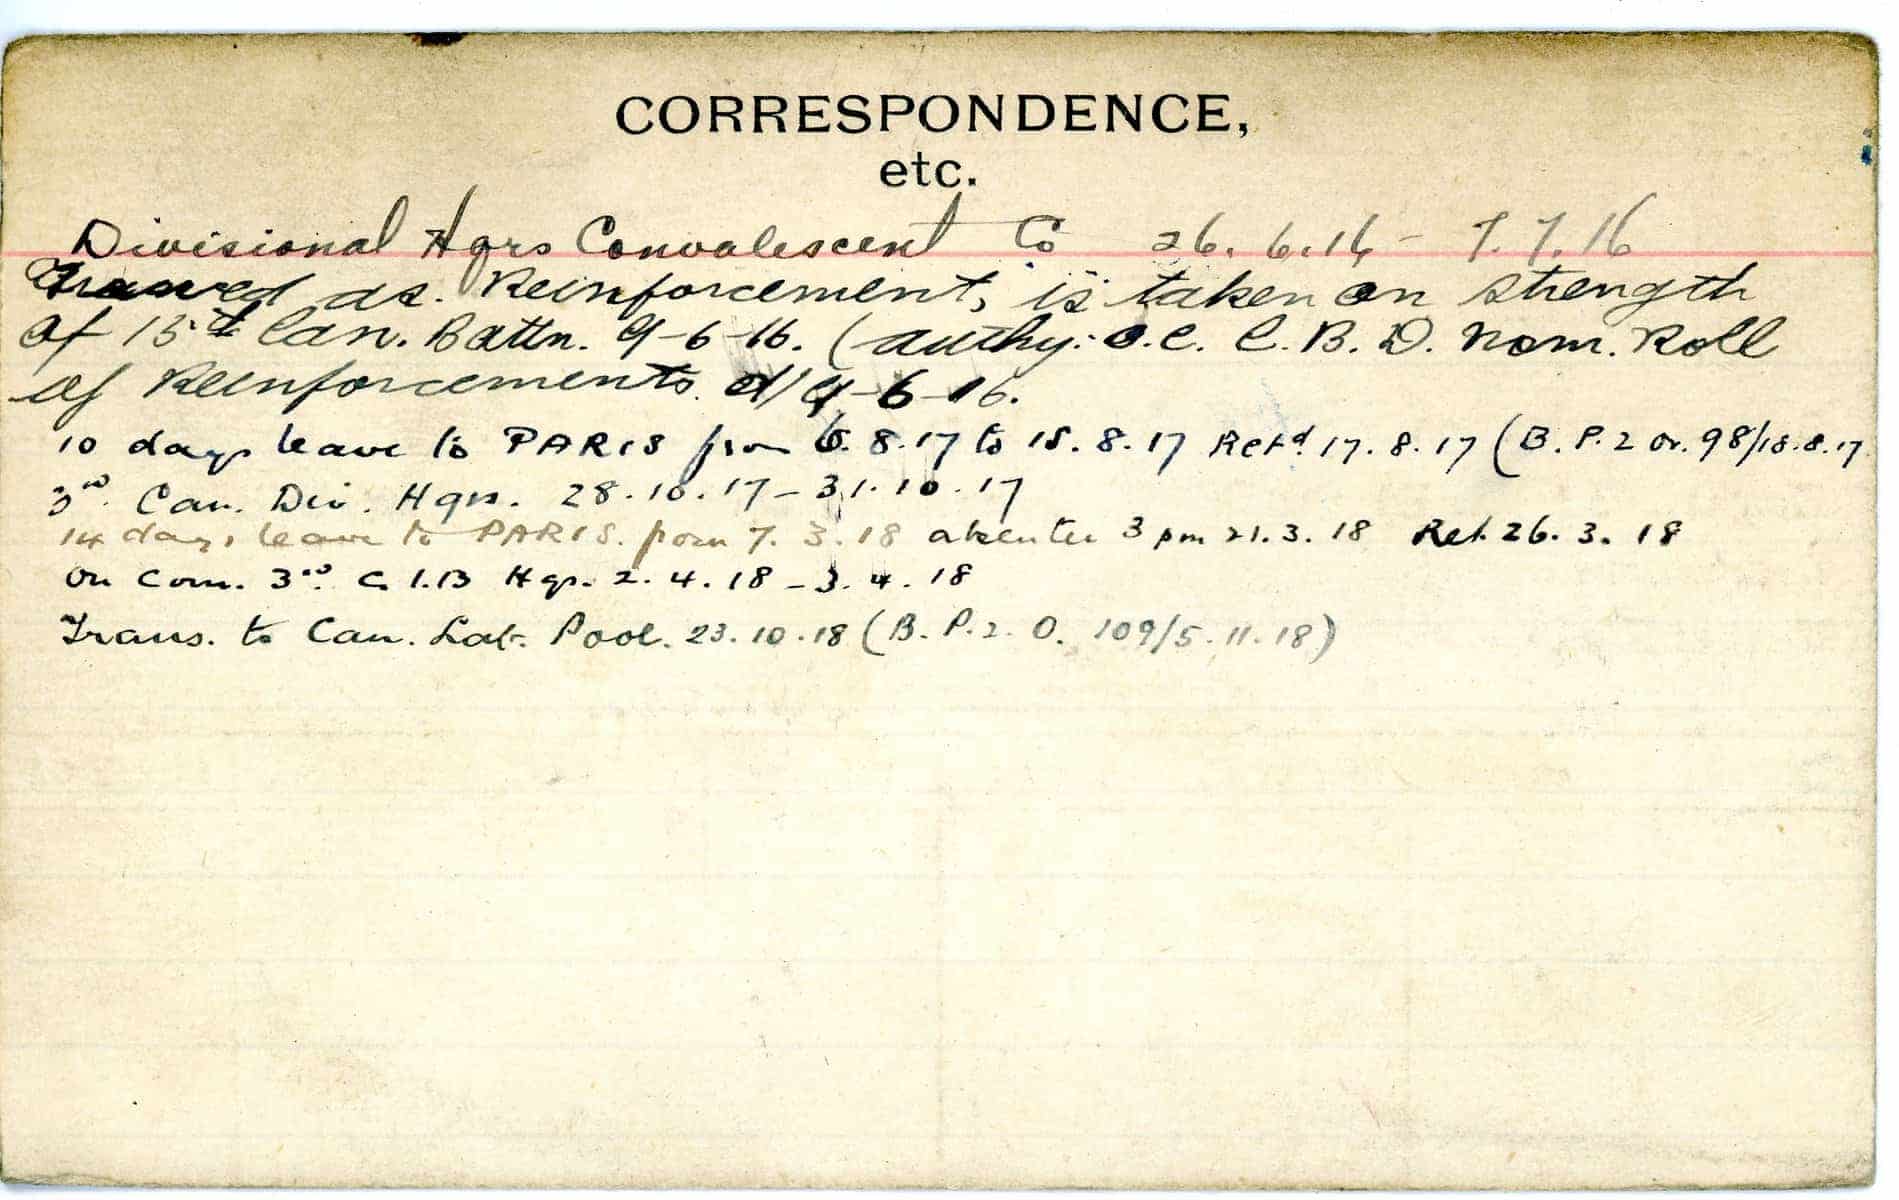 CORRESPONDENCE,
etc.
Divisional Hqrs Convalescent Co 26.6.16 - 7.7.16
as. Reinforcement, is taken on strength
of 15th Can. Battn. 9-6-16. (authy: O.C. C.B.D. Nom. Roll
of Reinforcements. d/ 9-6-16.
10 days leave to PARIS from 6.8.17 to 15.8.17 Retd. 17.8.17 (B.P.2 Or. 98/18.8.17
3rd. Can. Div. Hqrs. 28.10.17 - 31.10.17
14 days leave to PARIS. from 7.3.18 absentee 3 pm 21.3.18 Ret. 26.3.18
On Com. 3rd. C.I.B Hqs. 2.4.18 - 3.4.18
Trans. to Can. Lab. Pool. 23.10.18 (B.P.2.O. 109/5.11.18)